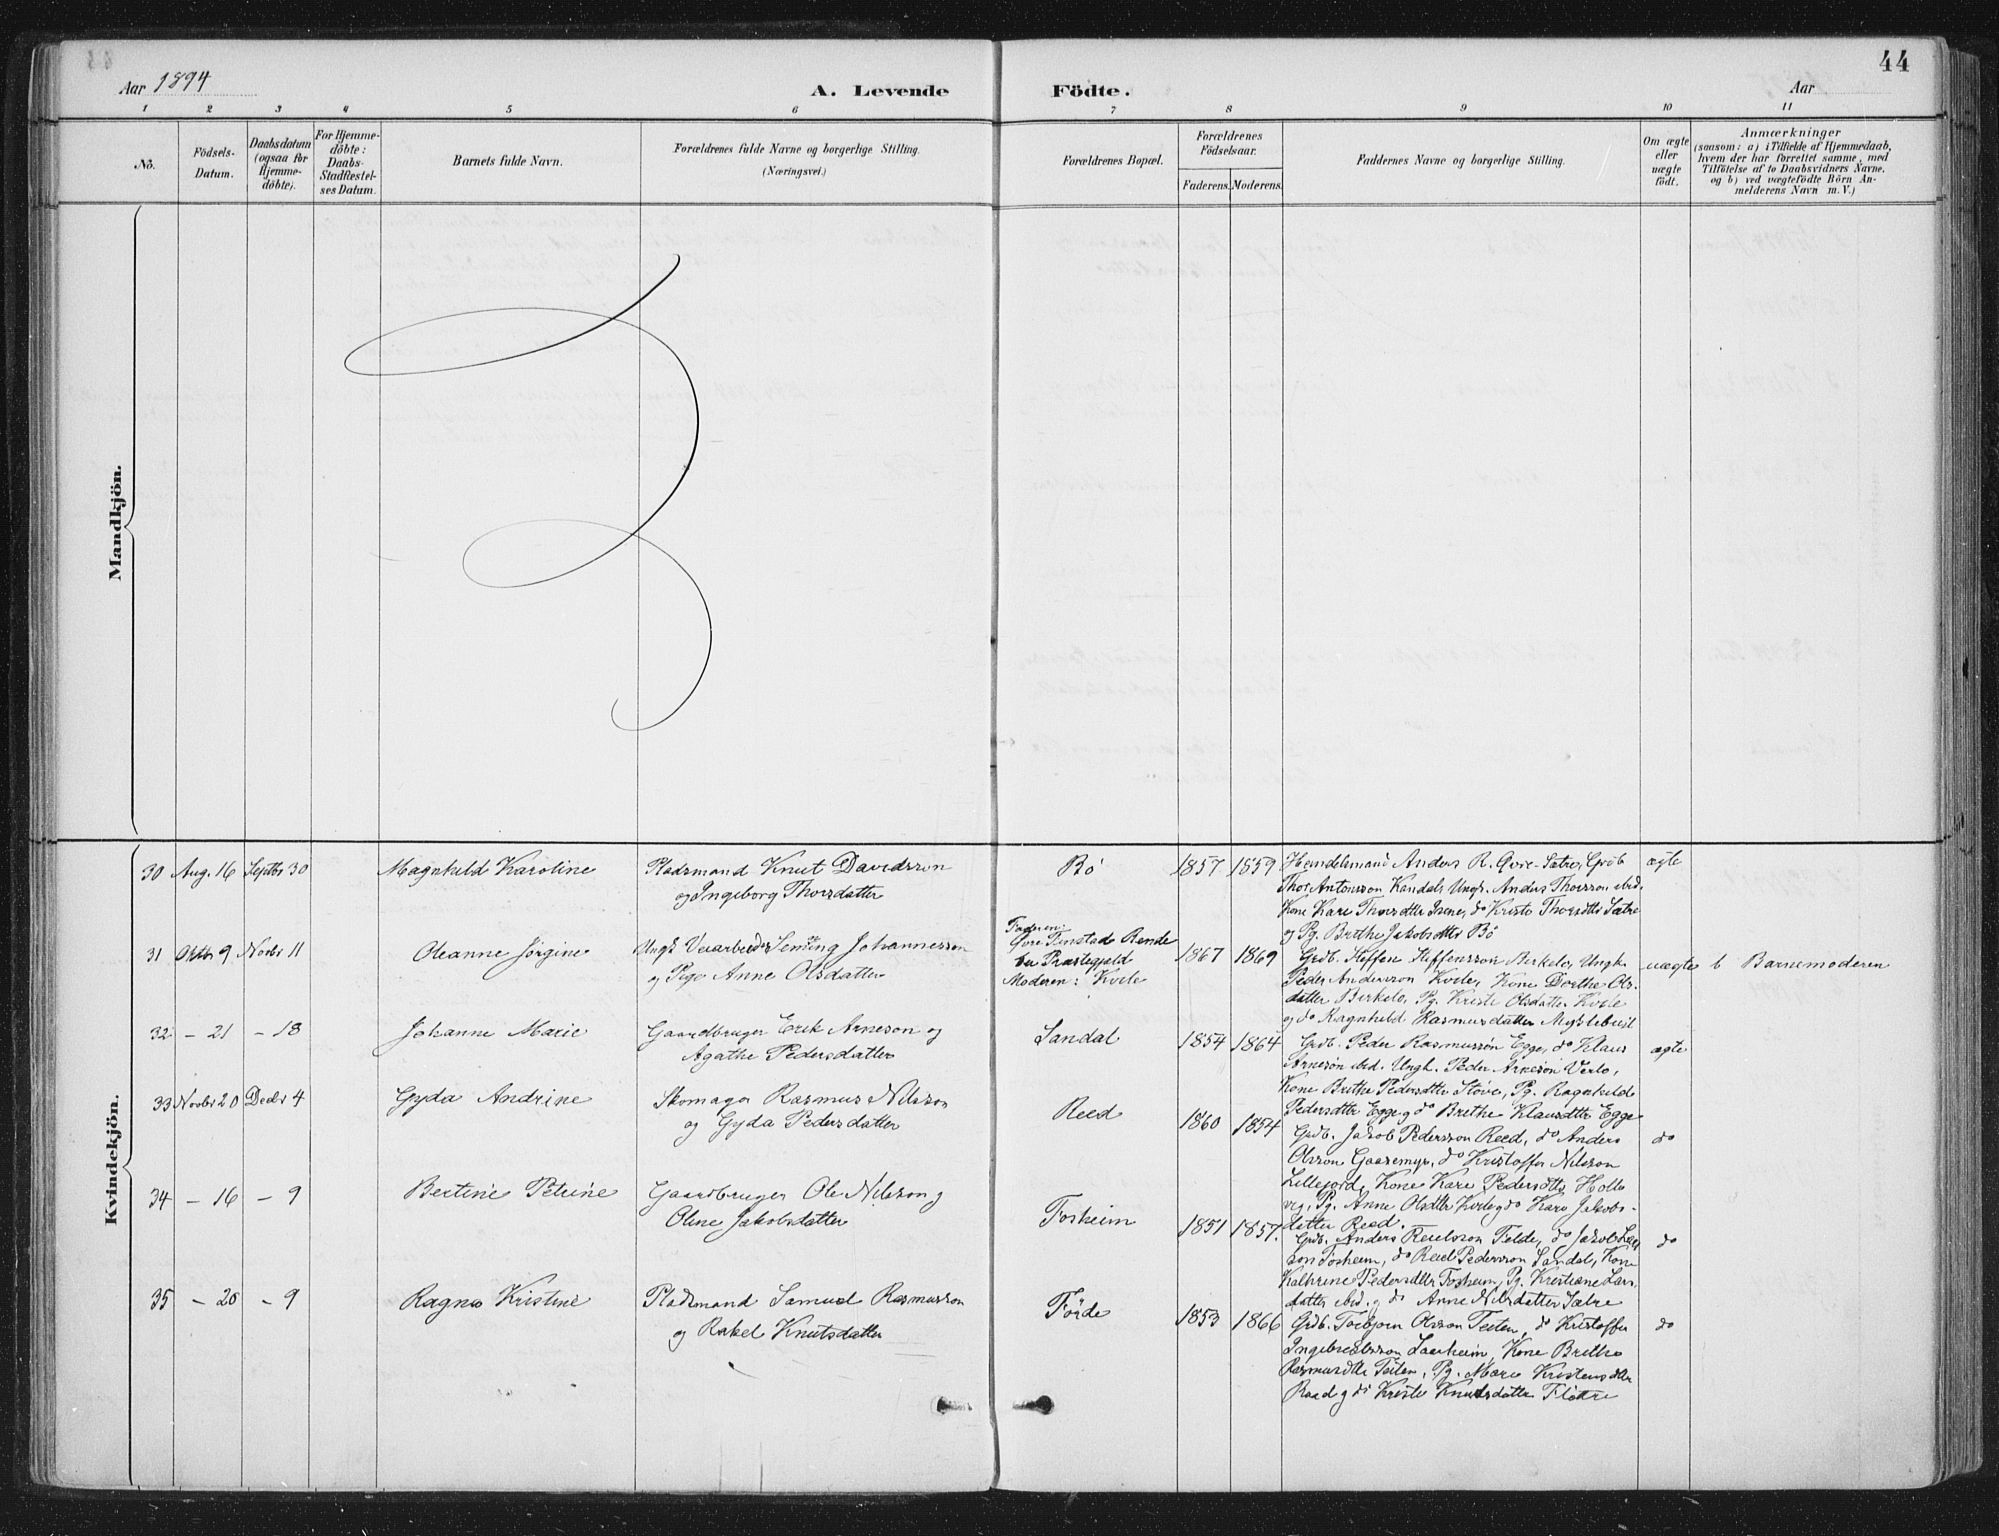 44
Aar 1894
A. Levende Födte.
Aar
1 2 3 4 5 6 7 8 9 10 11
No.
Födsels-Datum.
Daabsdatum (ogsaa for Hjemme-döbte).
For Hjemme-döbte: Daabs-Stadfæstel-ses Datum.
Barnets fulde Navn.
Forældrenes fulde Navne og borgerlige Stilling.
(Næringsvei.)
Forældrenes Bopæl.
Forældrenes Födselsaar.
Faderens. Moderens.
Faddernes Navne og borgerlige Stilling.
Om ægte eller uægte födt.
Anmærkninger
(saasom: a) i Tilfælde af Hjemmedaab,
hvem der har forrettet samme, med
Tilföielse af to Daabsvidners Navne.
og b) ved uægtefödte Börn An-
melderens Navn m. V.)
Mandkjön.
Kvindekjön.
30 Aug. 16 Septbr 30 Magnhild Karoline
Pladsmand Knut Davidsson
og Ingeborg Thorsdatter
Bö 1857 1859
Handelsmand Anders R. Övre-Sætre, Grdb
Thor Antonsson Kandal, Ungk. Anders Thorsson ibid.
Kone Kari Thorsdtter Isene, do Kristi Thorsdtter Sætre
og Pg. Brithe Jakobsdtter Bö
ægte
31 Oktbr 9 Novbr 11 Oleanne Jörgine
Ungk Veiarbeider Semming Johannesson
og Pige Anne Olsdatter
Faderen:
Övre Finstad Rende
bu Præstegjeld
Moderen: Kvile
1867 1869
Grdb. Steffen Steffensson Birkelo, Ungk.
Peder Andersson Kvile, Kone Dorthe Ols-
datter Birkelo, Pg. Kristi Olsdatter Kvile
og do Ragnhild Rasmusdatter Myklebust
uægte b Barnemoderen
32 – 21 – 18 Johanne Marie
Gaardbruger Erik Arneson og
Agathe Pedersdatter
Sandal 1854 1864
Grdb. Peder Rasmussön Egge, do Klaus
Arnesön ibid. Ungk. Peder Arnesön Verlo,
Kone Brithe Pedersdtter Störe, Pg. Ragnhild
Pedersdtter Egge g do Brithe Klausdtter Egge
ægte
33 Novbr 20 Decbr 4 Gyda Andrine
Skomager Rasmus Nilsson
og Gyda Pedersdatter
Reed 1860 1854
Grdb. Jakob Pedersson Reed, do Anders
Olsson Gaasemyr, do Kristoffer Nilsson
Lillefjord, Kone Kari Pedersdtter Holle
vig, Pg. Anne Olsdtter Kvile g do Kari Jakobs-
datter Reed.
do
34 – 16 – 9 Bertine Petrine
Gaardbruger Ole Nilsson g
Oline Jakobsdatter
Fosheim 1851 1857.
Grdb. Anders Reielsson Felde, do Jakob Lar
son Fosheim, do Reiel Pedersson Sandal, Kone
Kathrine Pedersdtter Fosheim, Pg. Kristiane Lars
datter ibid. g do Anne Nilsdatter Sætre
do
35 – 20 – 9 Ragna Kristine
Pladsmand Samuel Rasmusson
og Rakel Knutsdatter
Förde 1853 1866
Grdb. Torbjörn Olsson Teiten, do Kristoffer
Ingebrectsson Saarheim, Kone Brithe
Rasmusdtter Teiten, Pg. Mari Kristensdtter
Raad g do Kristi Knutsdatter Flötre
do